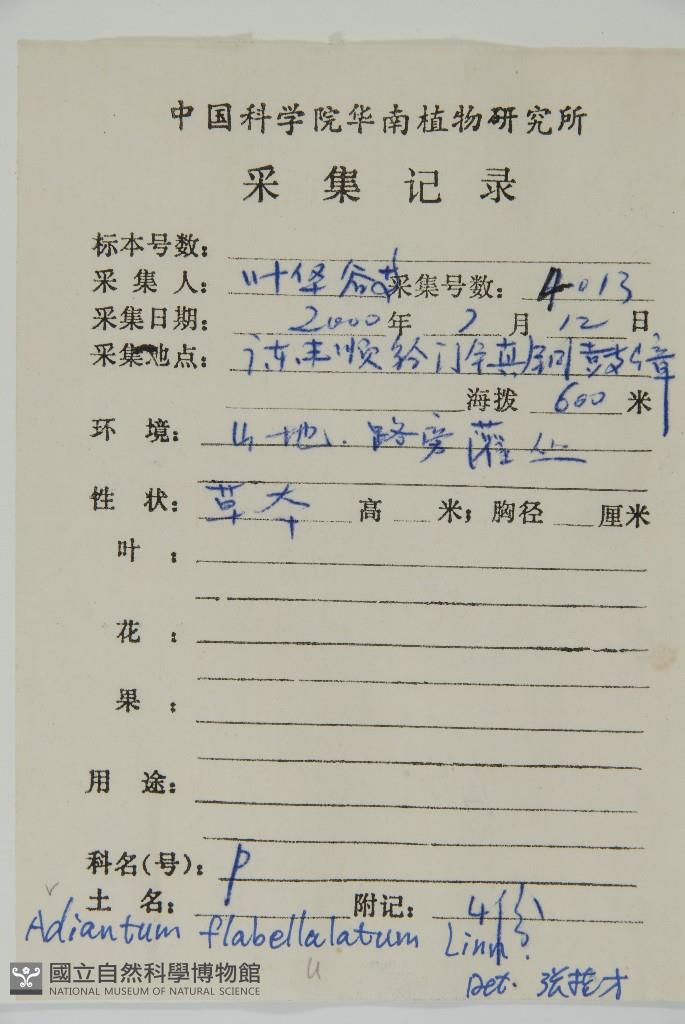 中国科学院华南植物研究所
采集记录
标本号数：
采集人：叶华谷 采集号数：4013
采集日期：2000年7月12日
采集地点：广东丰顺 铜鼓嶂
海拨 600 米
环境：山地．路旁灌丛
性状：草本 高 米；胸径 厘米
叶：
花：
果：
用途：
科名(号)：P
土名： 附记：4份
Adiantum flabellalatum Linn.
u
Det. 张桂才
國立自然科學博物館
NATIONAL MUSEUM OF NATURAL SCIENCE